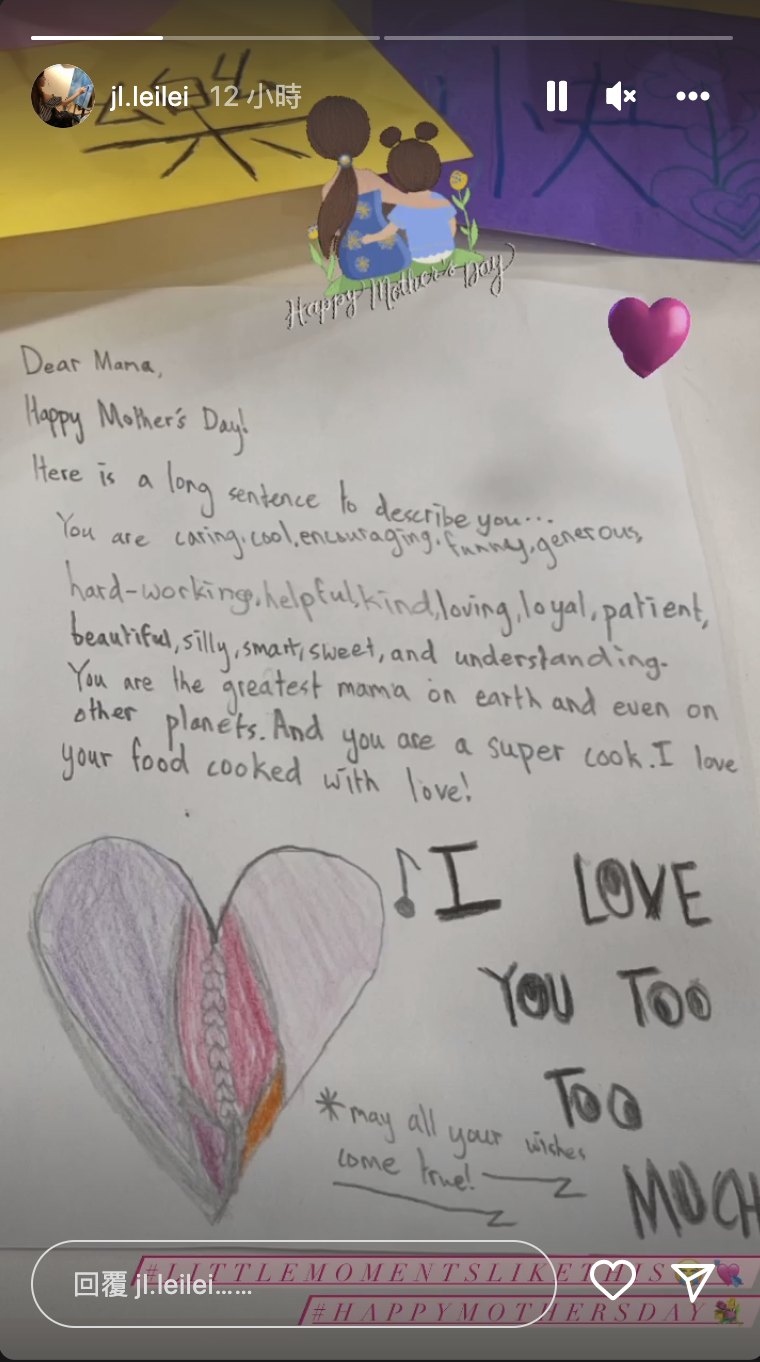 jl.leilei 12 小時
樂 快
Happy Mother's Day
Dear Mama,
Happy Mother's Day!
Here is a long sentence to describe you...
You are caring, cool, encouraging, funny, generous,
hard-working, helpful, kind, loving, loyal, patient,
beautiful, silly, smart, sweet, and understanding.
You are the greatest mama on earth and even on
other planets. And you are a super cook. I love
your food cooked with love!
♪I LOVE
YOU TOO
TOO
MUCH
*may all your wishes
come true!
#LITTLEMOMENTSLIKETHIS
回覆 jl.leilei……
#HAPPYMOTHERSDAY